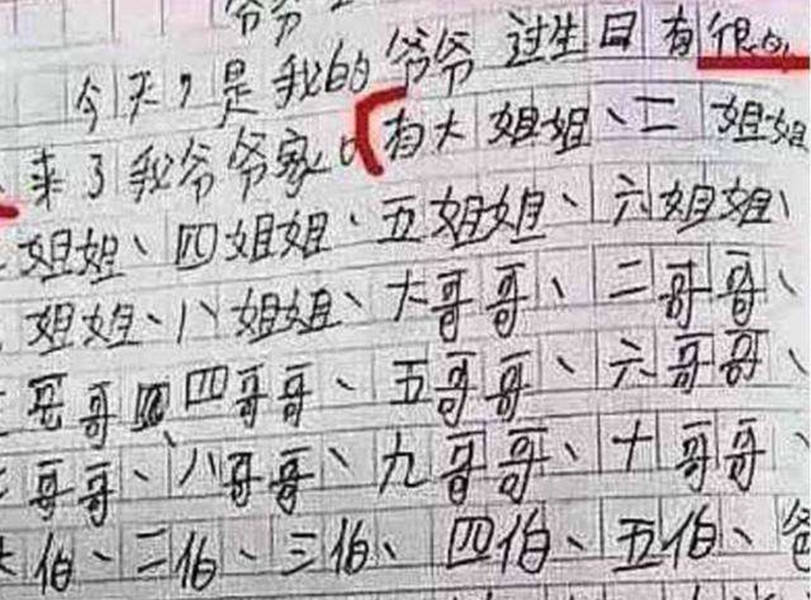 爷爷
今天,是我的爷爷过生日有很的
来了我爷爷家。有大姐姐、二姐姐
姐姐、四姐姐、五姐姐、六姐姐、
姐姐、八姐姐、大哥哥、二哥哥、
哥哥四哥哥、五哥哥、六哥哥、
哥哥、八哥哥、九哥哥、十哥哥、
伯、二伯、三伯、四伯、五伯、爸